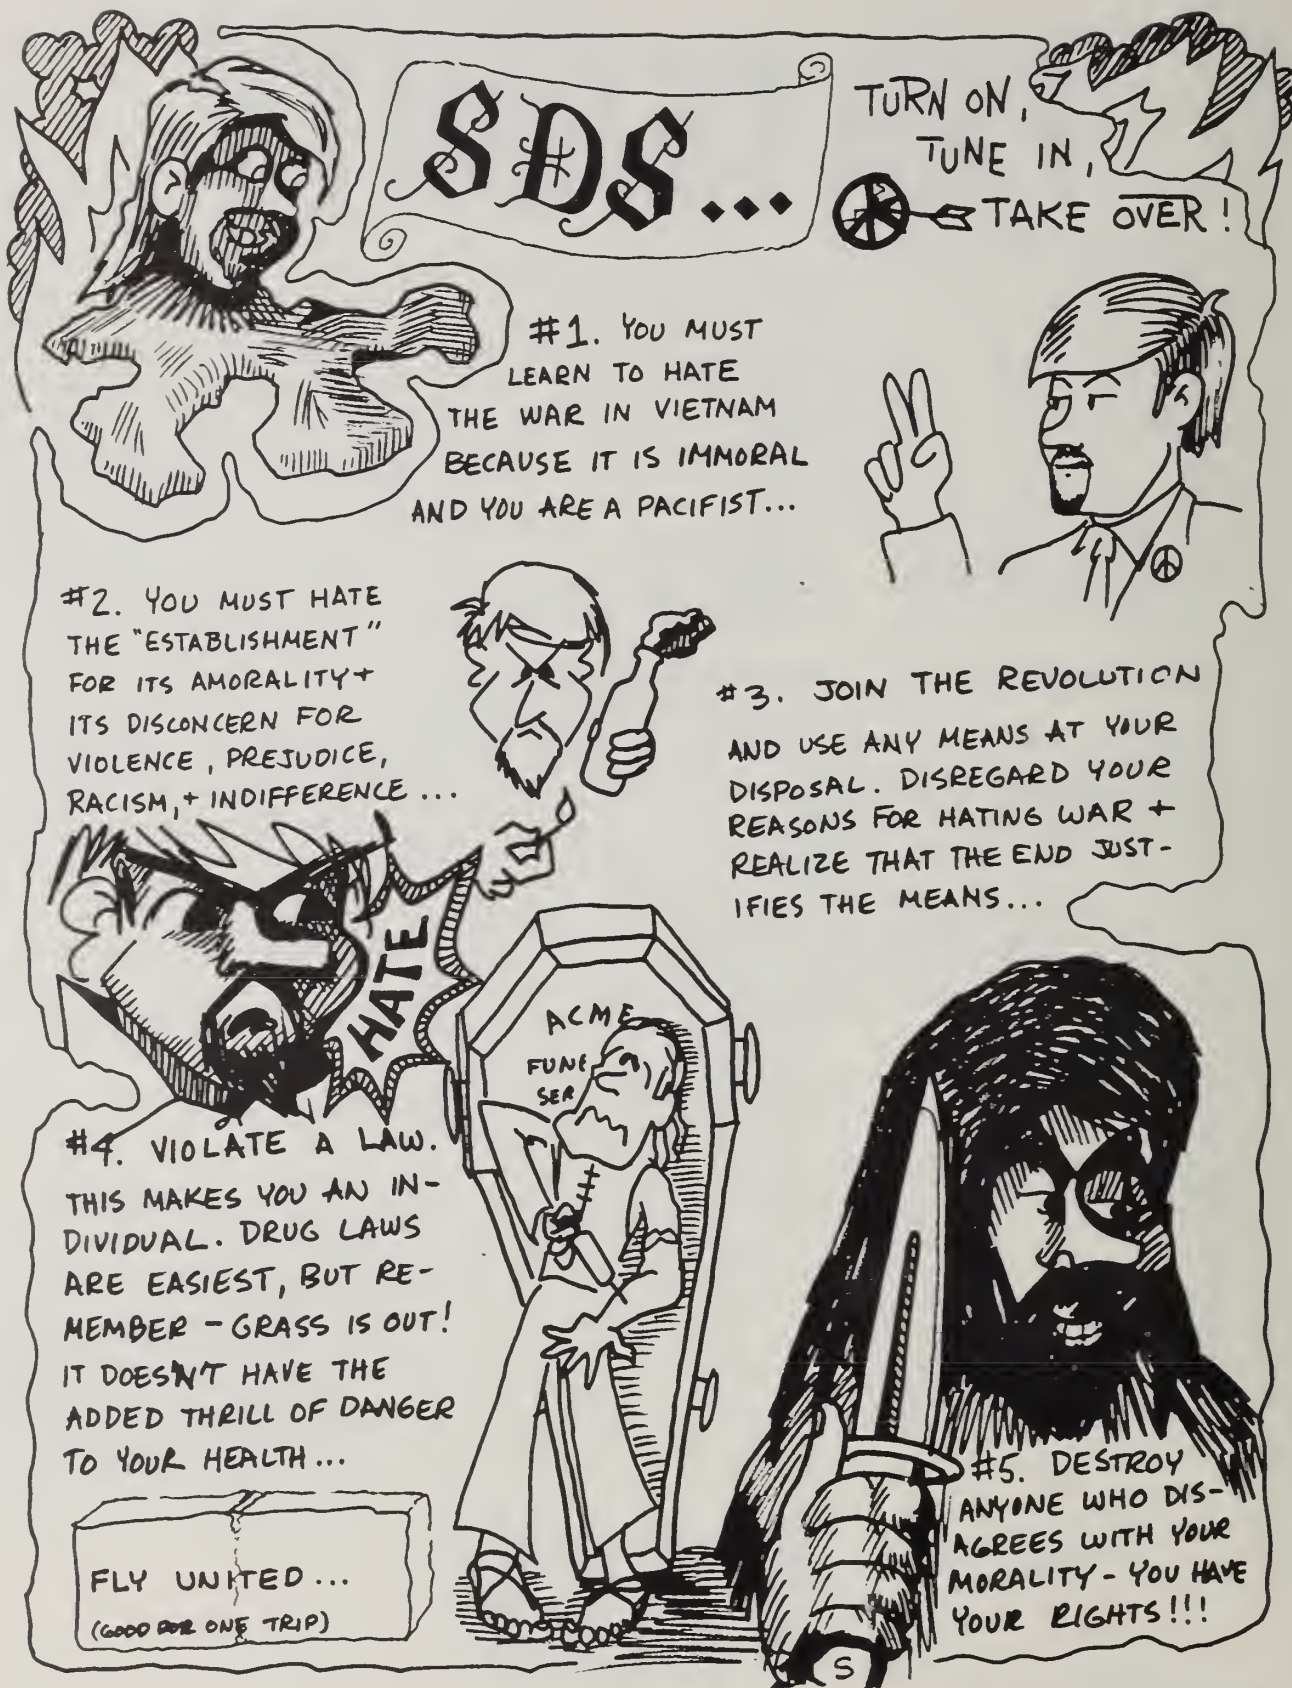 SDS...
TURN ON,
TUNE IN,
TAKE OVER!
#1. YOU MUST
LEARN TO HATE
THE WAR IN VIETNAM
BECAUSE IT IS IMMORAL
AND YOU ARE A PACIFIST...
#2. YOU MUST HATE
THE "ESTABLISHMENT"
FOR ITS AMORALITY +
ITS DISCONCERN FOR
VIOLENCE, PREJUDICE,
RACISM, + INDIFFERENCE...
#3. JOIN THE REVOLUTION
AND USE ANY MEANS AT YOUR
DISPOSAL. DISREGARD YOUR
REASONS FOR HATING WAR +
REALIZE THAT THE END JUST-
IFIES THE MEANS...
HATE
ACME
FUNE
SER
#4. VIOLATE A LAW.
THIS MAKES YOU AN IN-
DIVIDUAL. DRUG LAWS
ARE EASIEST, BUT RE-
MEMBER - GRASS IS OUT!
IT DOESN'T HAVE THE
ADDED THRILL OF DANGER
TO YOUR HEALTH...
FLY UNITED...
(GOOD FOR ONE TRIP)
#5. DESTROY
ANYONE WHO DIS-
AGREES WITH YOUR
MORALITY - YOU HAVE
YOUR RIGHTS!!!
S